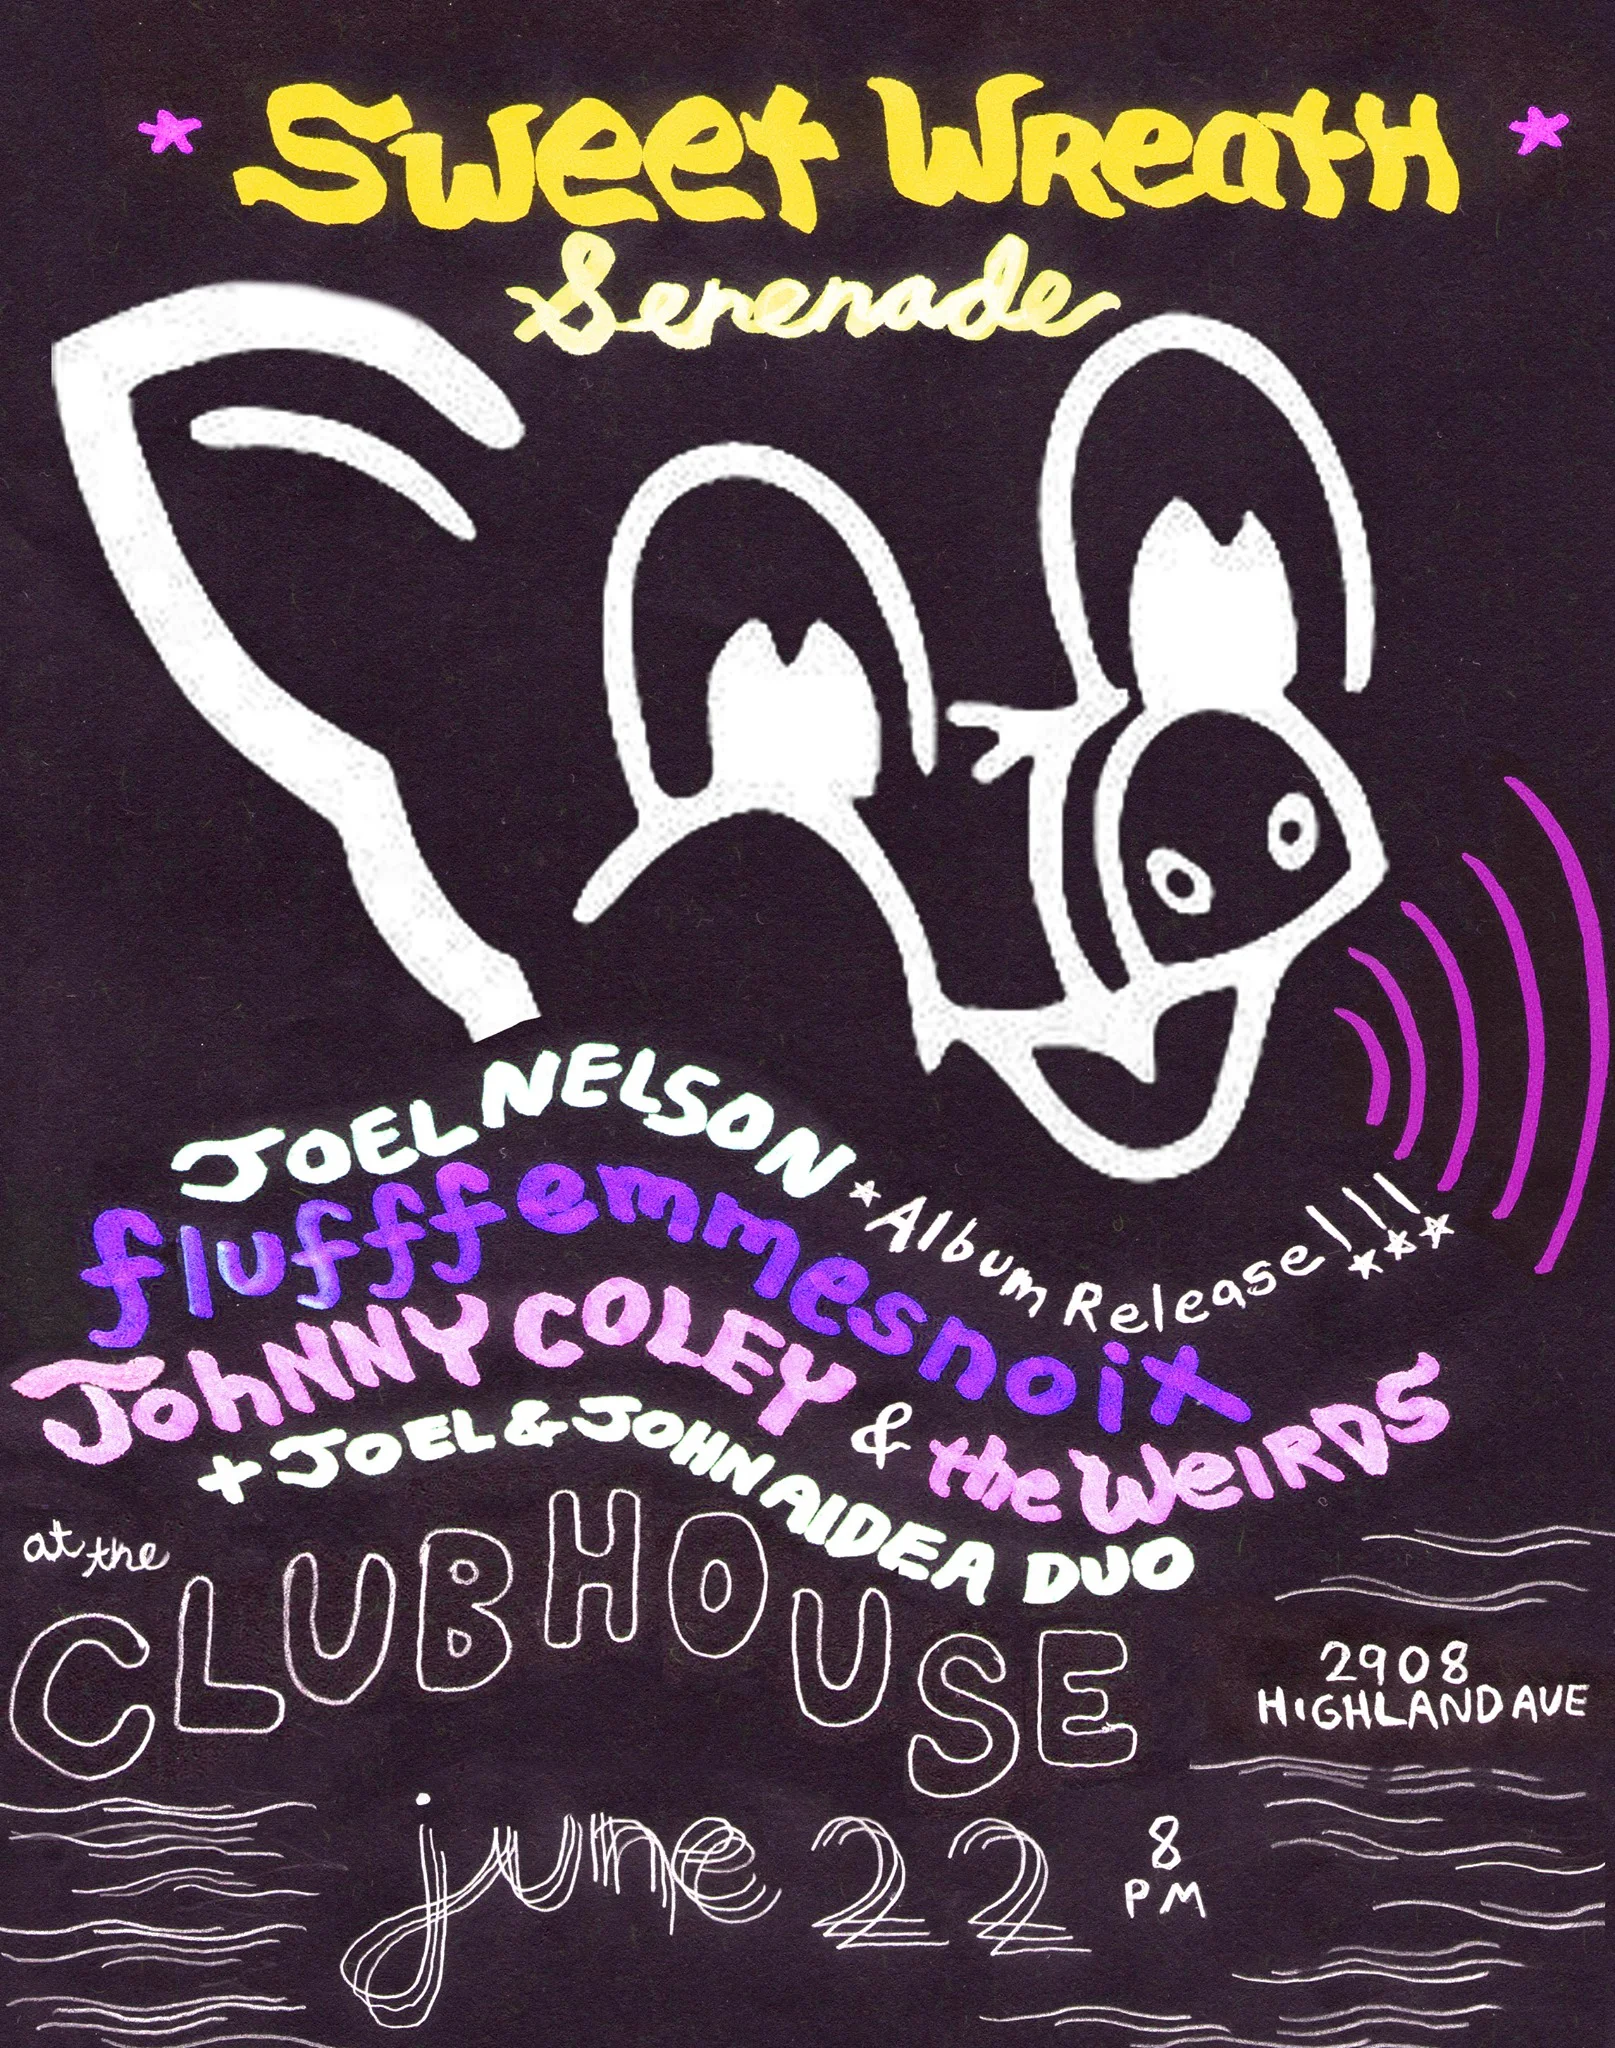 Sweet Wreath
Serenade
JOEL NELSON *Album Release!!!
fluffffemmesnoix
JohNNY COLEY & the WEIRDS
+ JOEL & JOHN AIDEA DUO
at the
CLUBHOUSE
2908
HIGHLAND AVE
june 22
8
PM